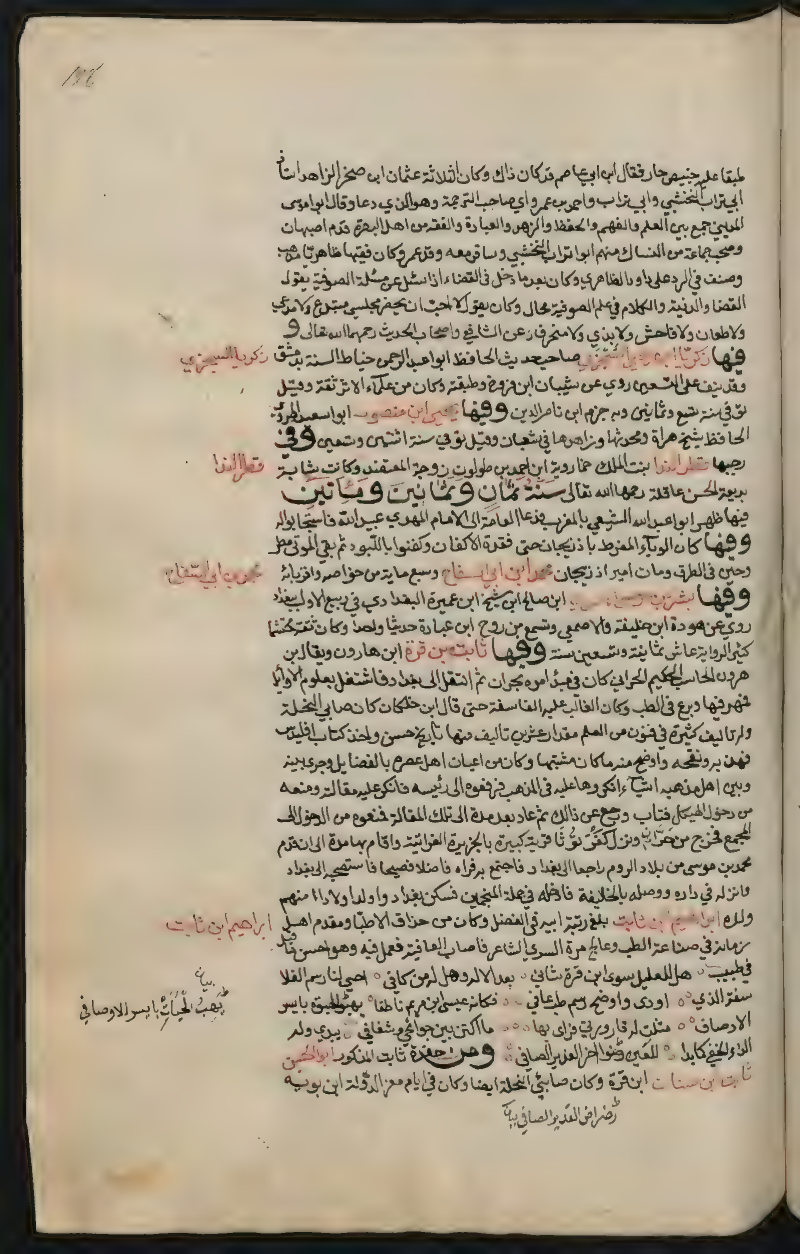 طبقا عليه خبيص حار فقال ابن ابي عاصم قد كان ذاك وكان الثلاثة عثمان ابن صخر الزاهد استاذ
ابي تراب النخشبي وابي تراب واحمد بن عمرو اي صاحب الترجمة وهو الذي دعا وقال ابو موسى
المديني جمع بين العلم والفهم والحفظ والزهد والعبادة والفقه من اهل البصرة قدم اصبهان
وصحب جماعة من النساك منهم ابو تراب النخشبي وسافر معه وقد عمر وكان فقيها ظاهري المذهب
وصنف في الرد على داود الظاهري وكان بعد ما دخل في القضاء اذا سئل عن مسئلة الصوفية يقول
القضا والدنية والكلام في علم الصوفية محال وكان يقول لا احب ان يحضر مجلسي مبتدع ولا مدعي
ولا طعان ولا فاحش ولا بذي ولا منحرف عن الشافعي واصحاب الحديث رحمهما الله تعالى و
فيها زكريا ابن يحيى السجزي صاحب حديث الحافظ ابو عبد الرحمن خياط السنة بدمشق
زكريا السجزي
وقد نيف على التسعين روى عن شيبان ابن فروخ وطبقته وكان من علماء الاثر ثقة وقيل
توفي سنة تسع وثمانين وبه جزم ابن ناصر الدين وفيها يحيى ابن منصور ابو سعد الهروي
الحافظ شيخ هراة ومحدثها وزاهدها في شعبان وقيل توفي سنة اثنتين وتسعين وفي
رجبها قطر الندا بنت الملك خمارويه ابن احمد بن طولون زوجة المعتضد وكانت شابة
قطر الندا
بديعة الحسن عاقلة رحمها الله تعالى سنة ثمان وثمانين ومأتين
فيها ظهر ابو عبد الله الشيعي بالمغرب فدعا العامة الى الامام المهدي عبيد الله فاستجابوا له
وفيها كان الوباء المفرط باذربيجان حتى فقدة الاكفان وكفنوا باللبود ثم بقي الموتى مطـ
رحين في الطرق ومات امير اذربيجان محمد ابن ابي الساج وسبع ماية من خواصه واقربائه
محمد بن ابي الساج
وفيها بشر بن موسى ابن صالح ابن شيخ ابن عميرة البغدادي في ربيع الاول ببغداد
روى عن هودة ابن خليفة والاصمعي وسمع من روح ابن عبادة حديثا واحدا وكان ثقة محتشما
كثير الرواية عاش ثمانية وتسعين سنة وفيها ثابت بن قرة ابن هارون ويقال بن
هرون الحاسب الحكيم الحراني كان في مبدا امره بحران ثم انتقل الى بغداد فاشتغل بعلوم الاوائل
فمهر فيها وبرع في الطب وكان الغالب عليه الفلسفة حتى قال ابن خلكان كان صابي النحلة
وله تاليف كثيرة في فنون من العلم مقدار عشرين تاليف منها تاريخ حسن واخذ كتاب اقليدس
فهذبه ونقحه واوضح منه ما كان مشتبها وكان من اعيان اهل عصره بالفضايل وجرى بينه
وبين اهل مذهبه اشياء انكروها عليه في المذهب فرفعوه الى رئيسه فانكر عليه مقالته ومنعه
من دخول الهيكل فتاب ورجع عن ذالك ثم عاد بعد مدة الى تلك المقالة فمنعوه من الدخول الى
المجمع فخرج من حران ونزل كفر توثا قرية كبيرة بالجزيرة الفراتية واقام بها مدة الى ان قدم
محمد بن موسى من بلاد الروم راجعا الى بغداد فاجتمع به فراه فاضلا فصيحا فاستصحبه الى بغداد
وانزله في داره ووصله بالخليفة فادخله في جملة المنجمين فسكن بغداد واولد اولادا منهم
ولده ابراهيم ابن ثابت بلغ رتبة ابيه في الفضل وكان من حذاق الاطبا ومقدم اهل
ابراهيم ابن ثابت
زمانه في صناعة الطب وعالج مرة السري الشاعر فاصاب العافية فعمل فيه وهو احسن ما قيل
في طبيب هل للعليل سوى ابن قرة شافي بعد الاله وهل له من كافي احيى لنا رسم الفلا
سفة الذي اودى واوضح رسم طب عافي فكانه عيسى ابن مريم ناطقا يهب الحيوة بايسر
بيان
يهب الحيات بايسر الاوصافي
الاوصاف مثلت له قارورتي فراى بها ما اكتن بين جوانحي وشغافي يبدي له
الداء الخفي كما بدا للعين رضراض الغدير الصافي ومن حفدة ثابت المذكور ابو الحسن
ثابت بن سنان ابن قرة وكان صابئي النحلة ايضا وكان في ايام معز الدولة ابن بويه
رضراض الغدير الصافي بيان